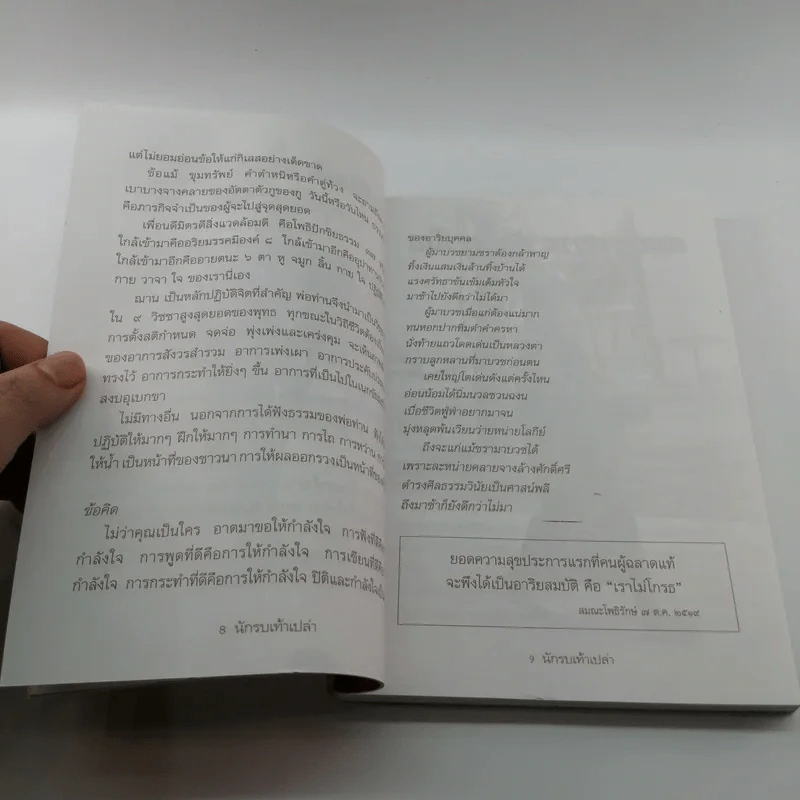 แต่ไม่ยอมอ่อนข้อให้แก่กิเลสอย่างเด็ดขาด
ข้อแม้ ขุมทรัพย์ คำตำหนิหรือคำคู่ท้วง
เบาบางจางคลายของอัตตาตัวกูของกู วันนี้หรือวันไหน
คือภารกิจจำเป็นของผู้จะไปสู่จุดสุดยอด
เพื่อนดีมิตรดีสิ่งแวดล้อมดี คือโพธิปักขิยธรรม ๓๗
ใกล้เข้ามาคืออริยมรรคมีองค์ ๘ ใกล้เข้ามาอีกคือ
ใกล้เข้ามาอีกคืออายตนะ ๖ ตา หู จมูก ลิ้น กาย ใจ
กาย วาจา ใจ ของเรานี่เอง
ฌาน เป็นหลักปฏิบัติจิตที่สำคัญ พ่อท่านจึงนำมา
ใน ๙ วิชชาสูงสุดยอดของพุทธ ทุกขณะในวิถีชีวิต
การตั้งสติกำหนด จดจ่อ พุ่งเพ่งและเคร่งคุม
ของอาการสังวรสำรวม อาการเพ่งเผา อาการ
ทรงไว้ อาการกระทำให้ยิ่งๆ ขึ้น อาการที่เป็นไปใน
สงบอุเบกขา
ไม่มีทางอื่น นอกจากการได้ฟังธรรมของพ่อท่าน
ปฏิบัติให้มากๆ ฝึกให้มากๆ การทำนา การไถ การหว่าน
ให้น้ำ เป็นหน้าที่ของชาวนา การให้ผลออกรวงเป็นหน้าที่ของ
ข้อคิด
ไม่ว่าคุณเป็นใคร อาตมาขอให้กำลังใจ การฟังที่ดี
กำลังใจ การพูดที่ดีคือการให้กำลังใจ การเขียนที่ดี
กำลังใจ การกระทำที่ดีคือการให้กำลังใจ ปิติและกำลังใจ
8 นักรบเท้าเปล่า
ของอาริยบุคคล
ผู้มาบวชยามชราต้องกล้าหาญ
ทิ้งเงินแสนเงินล้านทิ้งบ้านได้
แรงศรัทธาข้นเข้มเต็มหัวใจ
มาช้าไปยังดีกว่าไม่ได้มา
ผู้มาบวชเมื่อแก่ต้องแน่มาก
ทนหอกปากทิ่มตำคำครหา
นั่งท้ายแถวโดดเด่นเป็นหลวงตา
กราบลูกหลานที่มาบวชก่อนตน
เคยใหญ่โตเด่นดังแต่ครั้งไหน
อ่อนน้อมได้นิ่มนวลชวนฉงน
เบื่อชีวิตฟู่ฟ่าอยากมาจน
มุ่งหลุดพ้นเวียนว่ายหน่ายโลกีย์
ถึงจะแก่แม้ชรามาบวชได้
เพราะละหน่ายคลายจางล้างศักดิ์ศรี
ดำรงศีลธรรมวินัยเป็นศาสน์พลี
ถึงมาช้าก็ยังดีกว่าไม่มา
ยอดความสุขประการแรกที่คนผู้ฉลาดแท้
จะพึงได้เป็นอาริยสมบัติ คือ “เราไม่โกรธ”
สมณะโพธิรักษ์ ๗ ต.ค. ๒๕๑๙
9 นักรบเท้าเปล่า